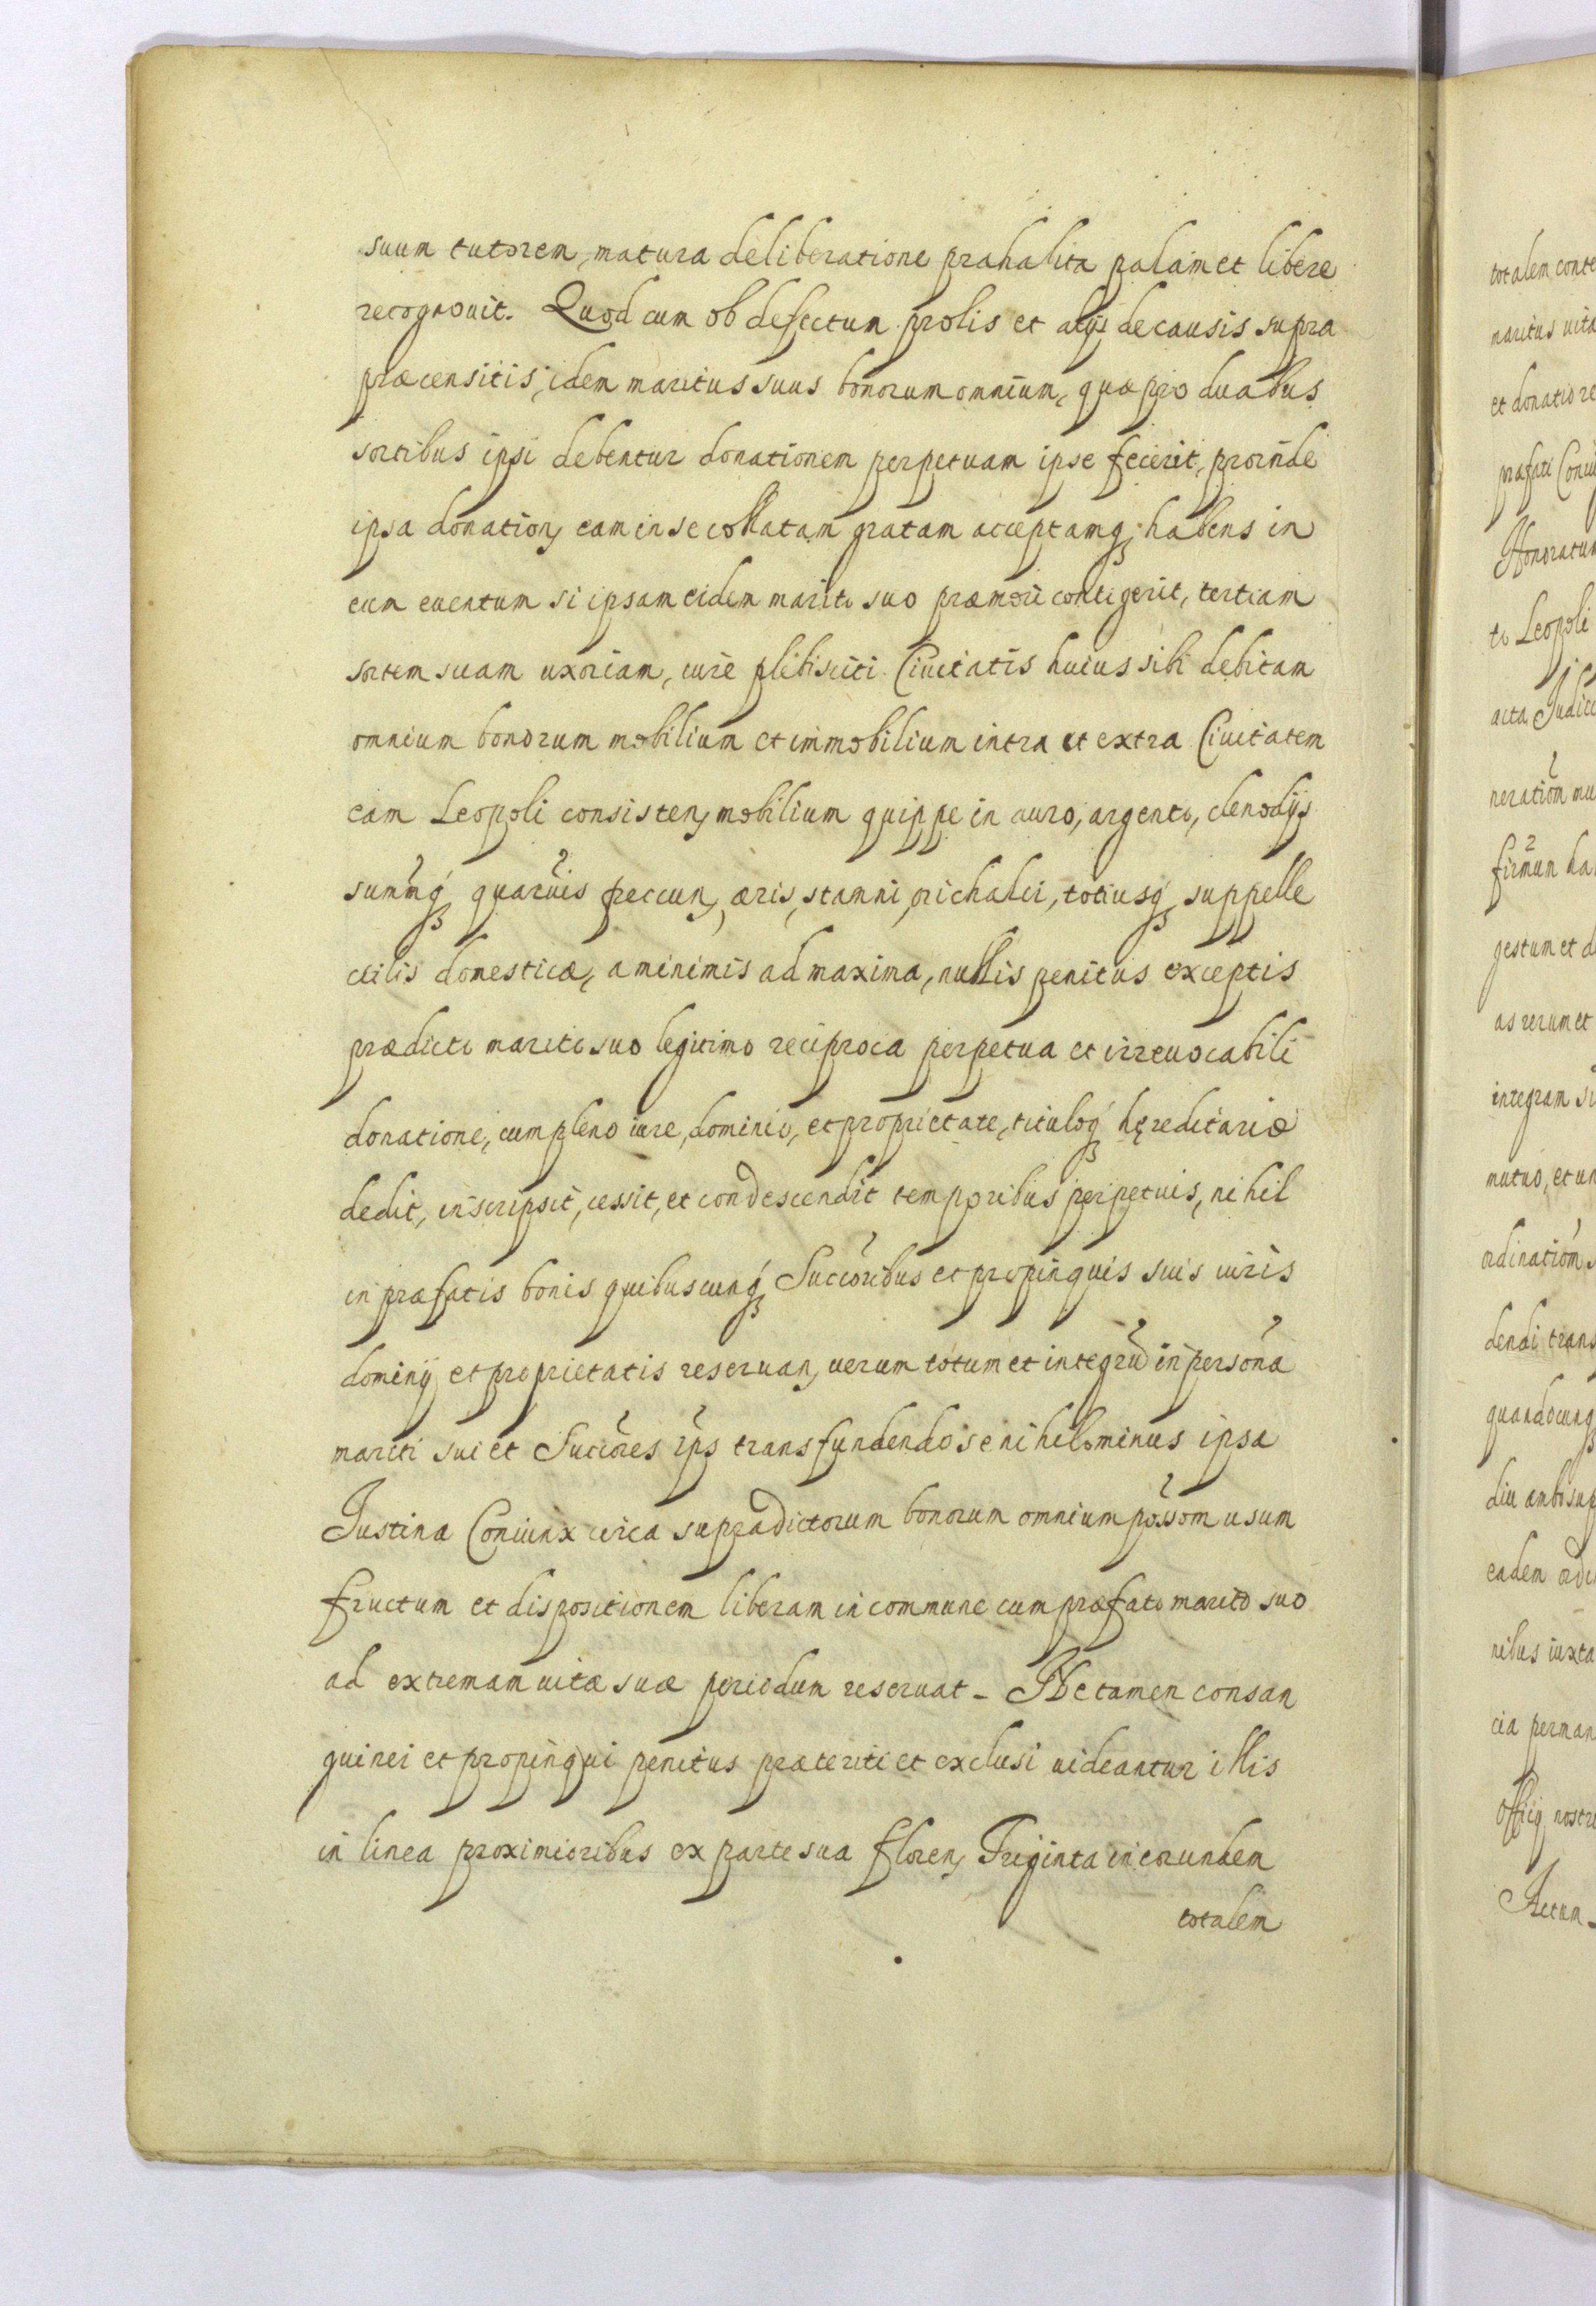 suum tutorem, matura deliberatione prahabita palam et libere
recognouit. Quod cum ob defectum prolis et alijs de causis supra
præcensitis, idem maritus suus bonorum omnium, quæ pro duabus
sortibus ipsi debentur donationem perpetuam ipse fecerit, proinde
ipsa donation, eam in se collatam gratam acceptamq habens in
eum euentum si ipsam eidem marito suo præmori contigerit, tertiam
sortem suam uxoriam, iure plebisciti Ciuitatis huius sibi debitam
omnium bonorum mobilium et immobilium intra et extra Ciuitatem
eam Leopoli consisten, mobilium quippe in auro, argento, clenodijs
summq quaruis peccun, æris, stamni, orichalci, totiusq suppelle
ctilis domesticæ, a minimis ad maxima, nullis penitus exceptis
prædicto marito suo legitimo reciproca perpetua et irreuocabili
donatione, cum pleno iure, dominio, et proprietate, tituloq hęreditario
dedit, inscripsit, cessit, et condescendit temporibus perpetuis, nihil
in præfatis bonis quibuscunq Succoribus et propinquis suis iuris
dominij et proprietatis reseruan, uerum totum et integrū in personā
mariti sui et Succores ips transfundendo se nihilominus ipsa
Justina Coniunx circa supradictorum bonorum omnium possom usum
fructum et dispositionem liberam in commune cum præfato marito suo
ad extremam uitæ suæ periodum reseruat - Ne tamen consan
guinei et propinqui penitus præteriti et exclusi uideantur illis
in linea proximioribus ex parte sua floren, Triginta in eorundem
totalem
totalem conte
maritus uita
et donatio re
præfati Coniu
Honoratum
to Leopoli
acta Judici
neration mu
firmum ha
gestum et d
as rerum et
integram su
mutuo, et un
ordination s
dendi trans
quandocunq
diu ambo sup
eadem ordi
nibus iuxta
cia perman
Officij nostri
Actum